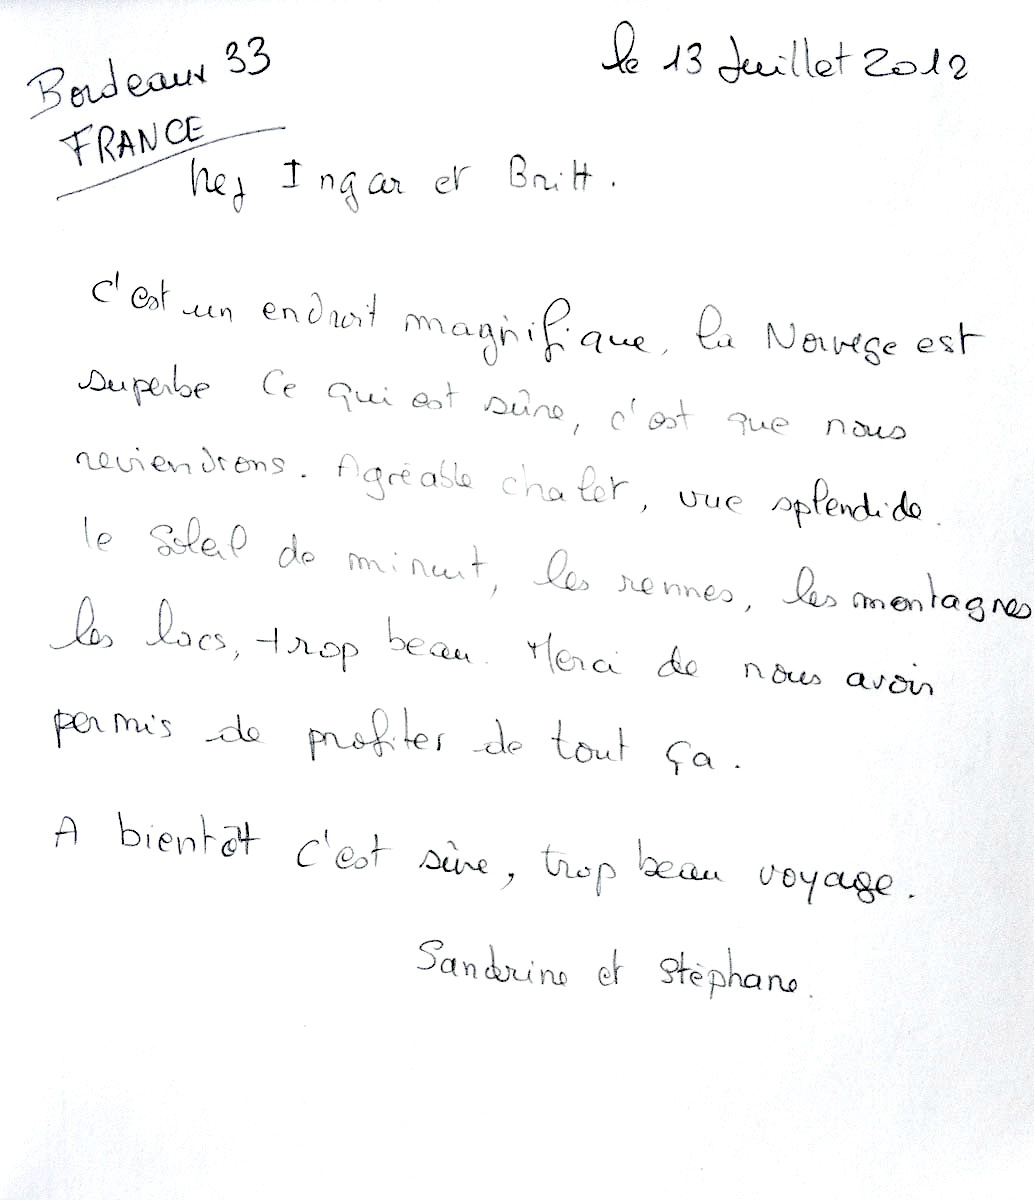 Bordeaux 33
FRANCE
le 13 Juillet 2012
hej Ingar et Britt.
C'est un endroit magnifique, la Norvège est
superbe Ce qui est sûre, c'est que nous
reviendrons. Agréable chalet, vue splendide.
le soleil de minuit, les rennes, les montagnes
les lacs, trop beau. Merci de nous avoir
permis de profiter de tout ça.
A bientôt c'est sûre, trop beau voyage.
Sandrine et Stéphane.